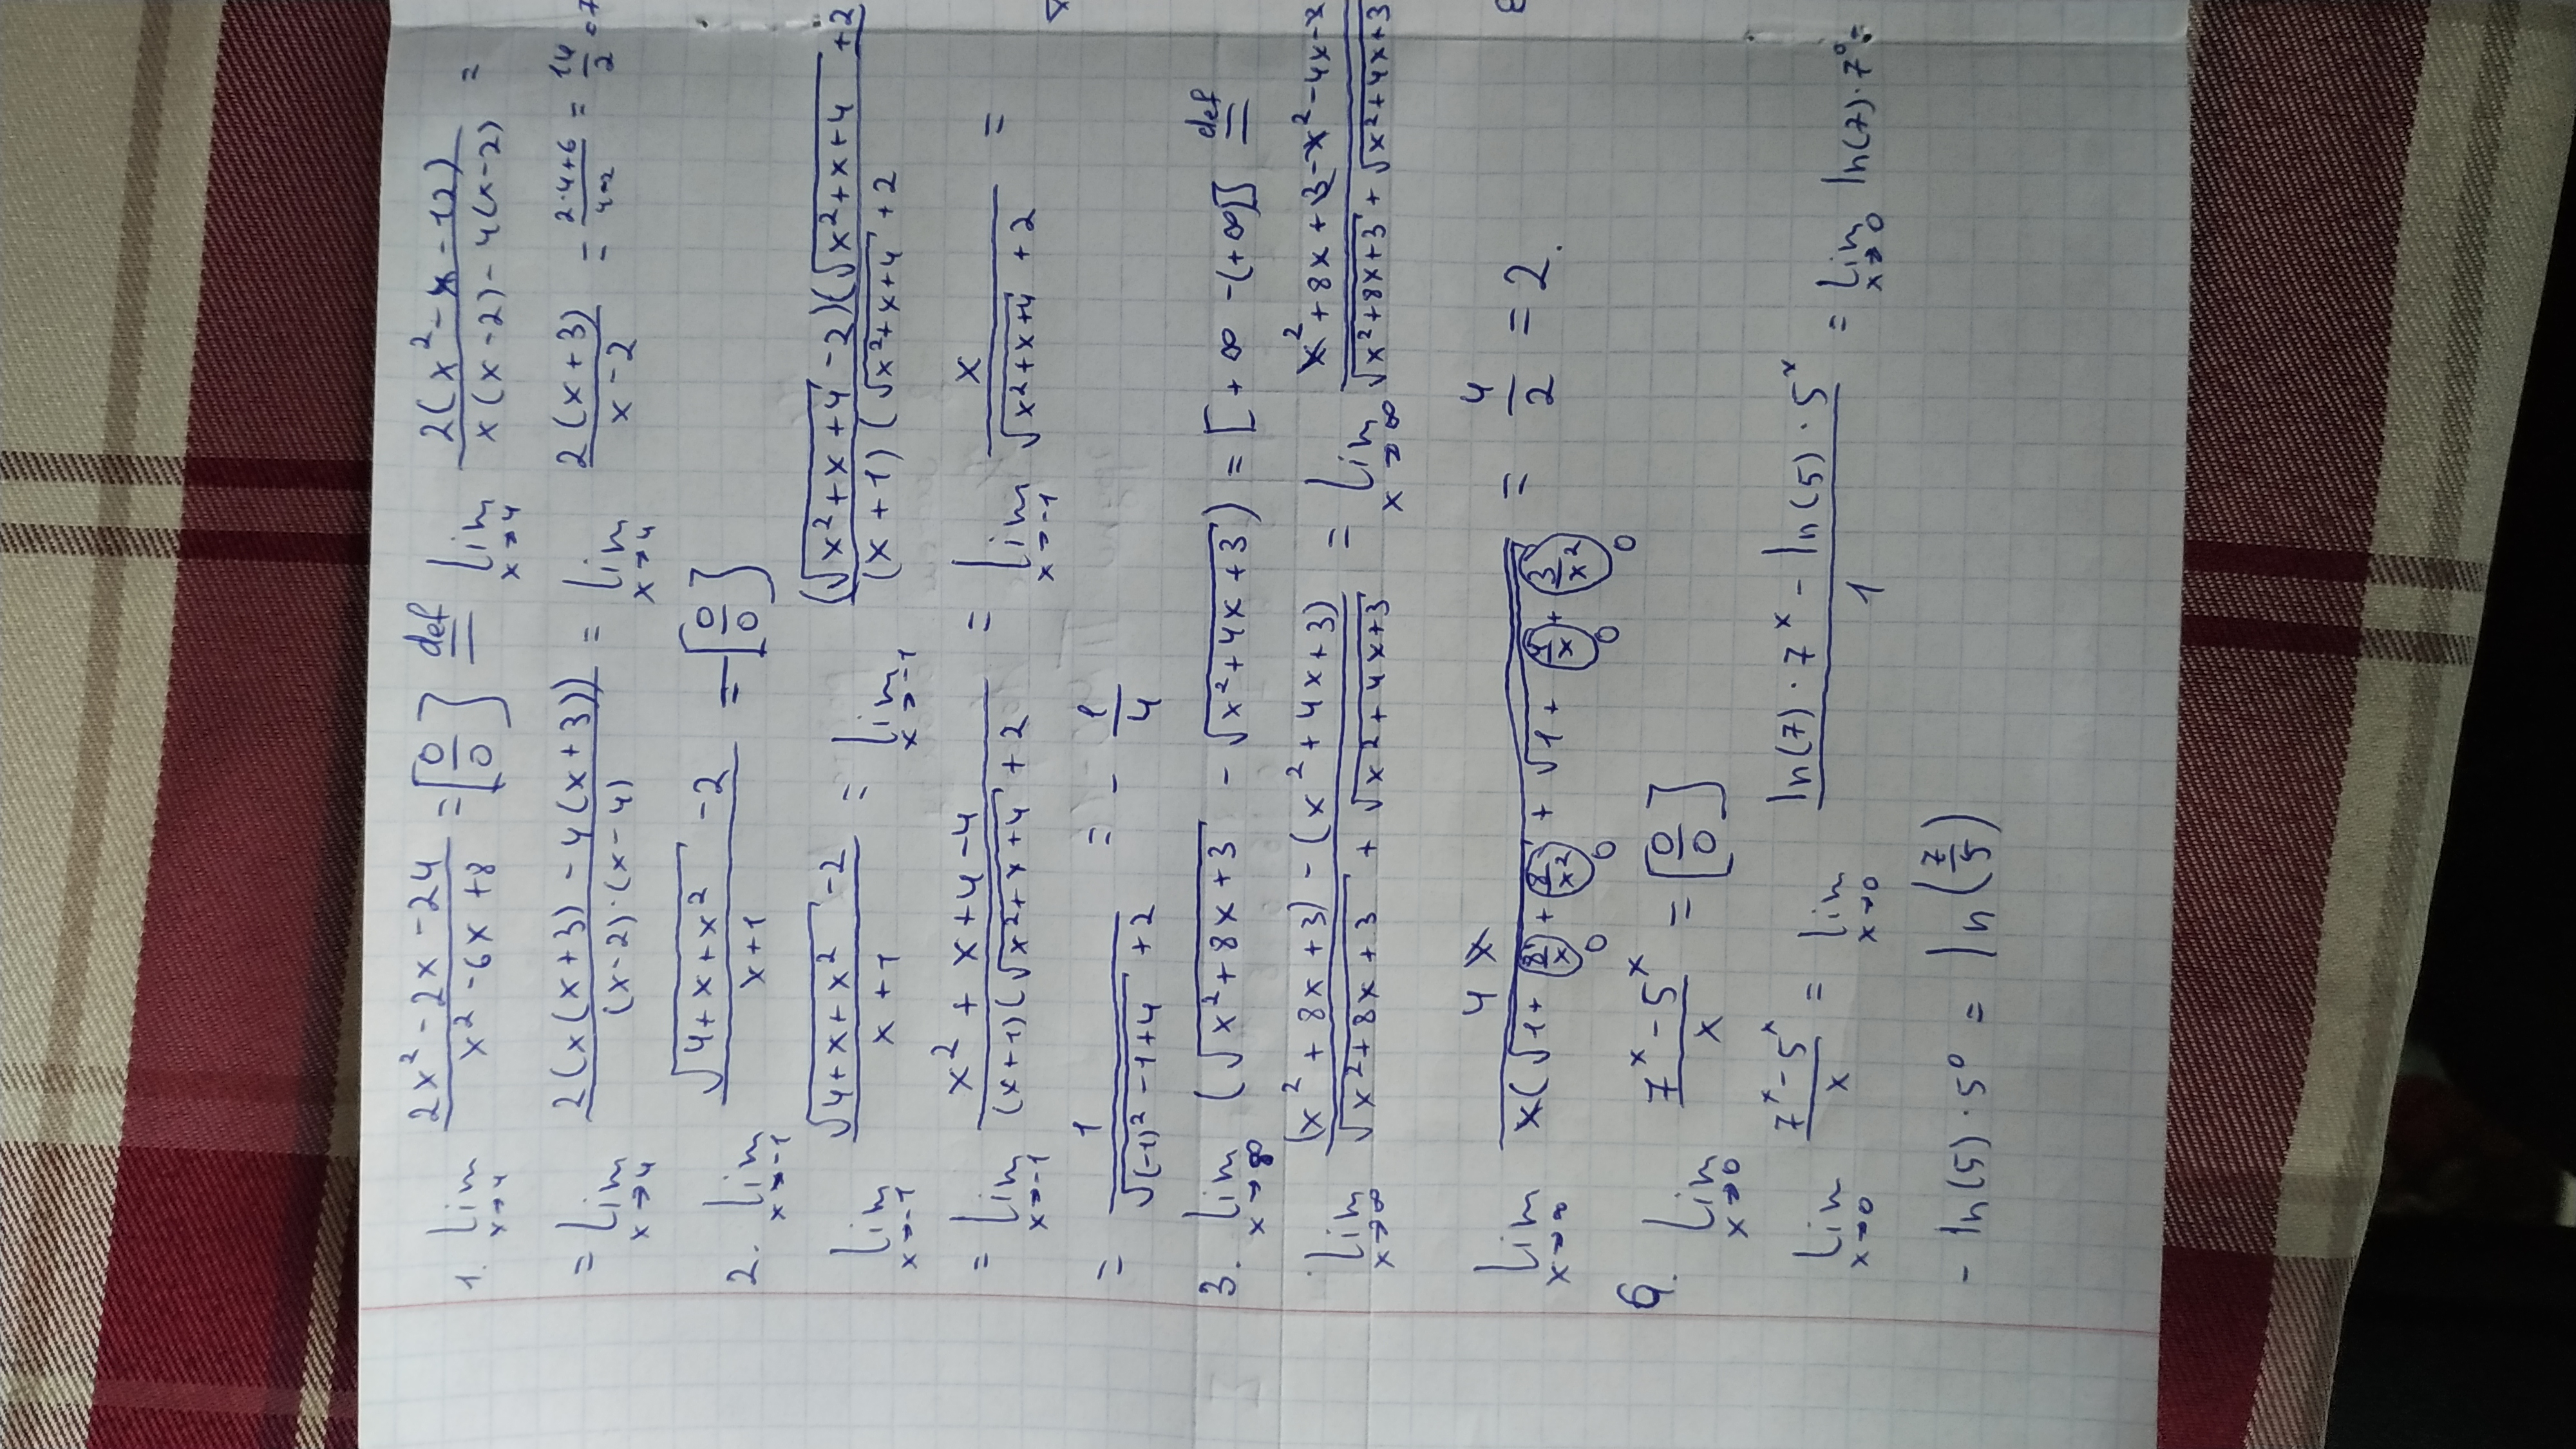 1. lim x→4 (2x² - 2x - 24)/(x² - 6x + 8) = [0/0] def= lim x→4 2(x² - x - 12)/(x(x-2) - 4(x-2)) =
= lim x→4 2(x(x+3) - 4(x+3))/((x-2)·(x-4)) = lim x→4 2(x+3)/(x-2) = (2·4+6)/(4-2) = 14/2 = 7
2. lim x→-1 (√(4+x+x²) - 2)/(x+1) = [0/0]
lim x→-1 (√(4+x+x²) - 2)/(x+1) = lim x→-1 (√(x²+x+4) - 2)(√(x²+x+4) + 2/(x+1)(√(x²+x+4) + 2
= lim x→-1 (x² + x + 4 - 4)/(x+1)(√(x²+x+4) + 2 = lim x→-1 x/(√(x²+x+4) + 2) =
= 1/(√((-1)² - 1 + 4) + 2) = - 1/4
3. lim x→∞ (√(x²+8x+3) - √(x²+4x+3)) = [+∞ -(+∞)] def=
lim x→∞ ((x² + 8x + 3) - (x² + 4x + 3))/(√(x²+8x+3) + √(x²+4x+3)) = lim x→∞ (x² + 8x + 3 - x² - 4x - 3)/(√(x²+8x+3) + √(x²+4x+3
lim x→∞ 4x/x(√(1 + 8/x + 8/x²) + √(1 + 4/x + 3/x²) = 4/2 = 2.
0 0 0 0
6. lim x→0 (7ˣ - 5ˣ)/x = [0/0]
lim x→0 (7ˣ - 5ˣ)/x = lim x→0 (ln(7)·7ˣ - ln(5)·5ˣ)/1 = lim x→0 ln(7)·7⁰ -
- ln(5)·5⁰ = ln(7/5)